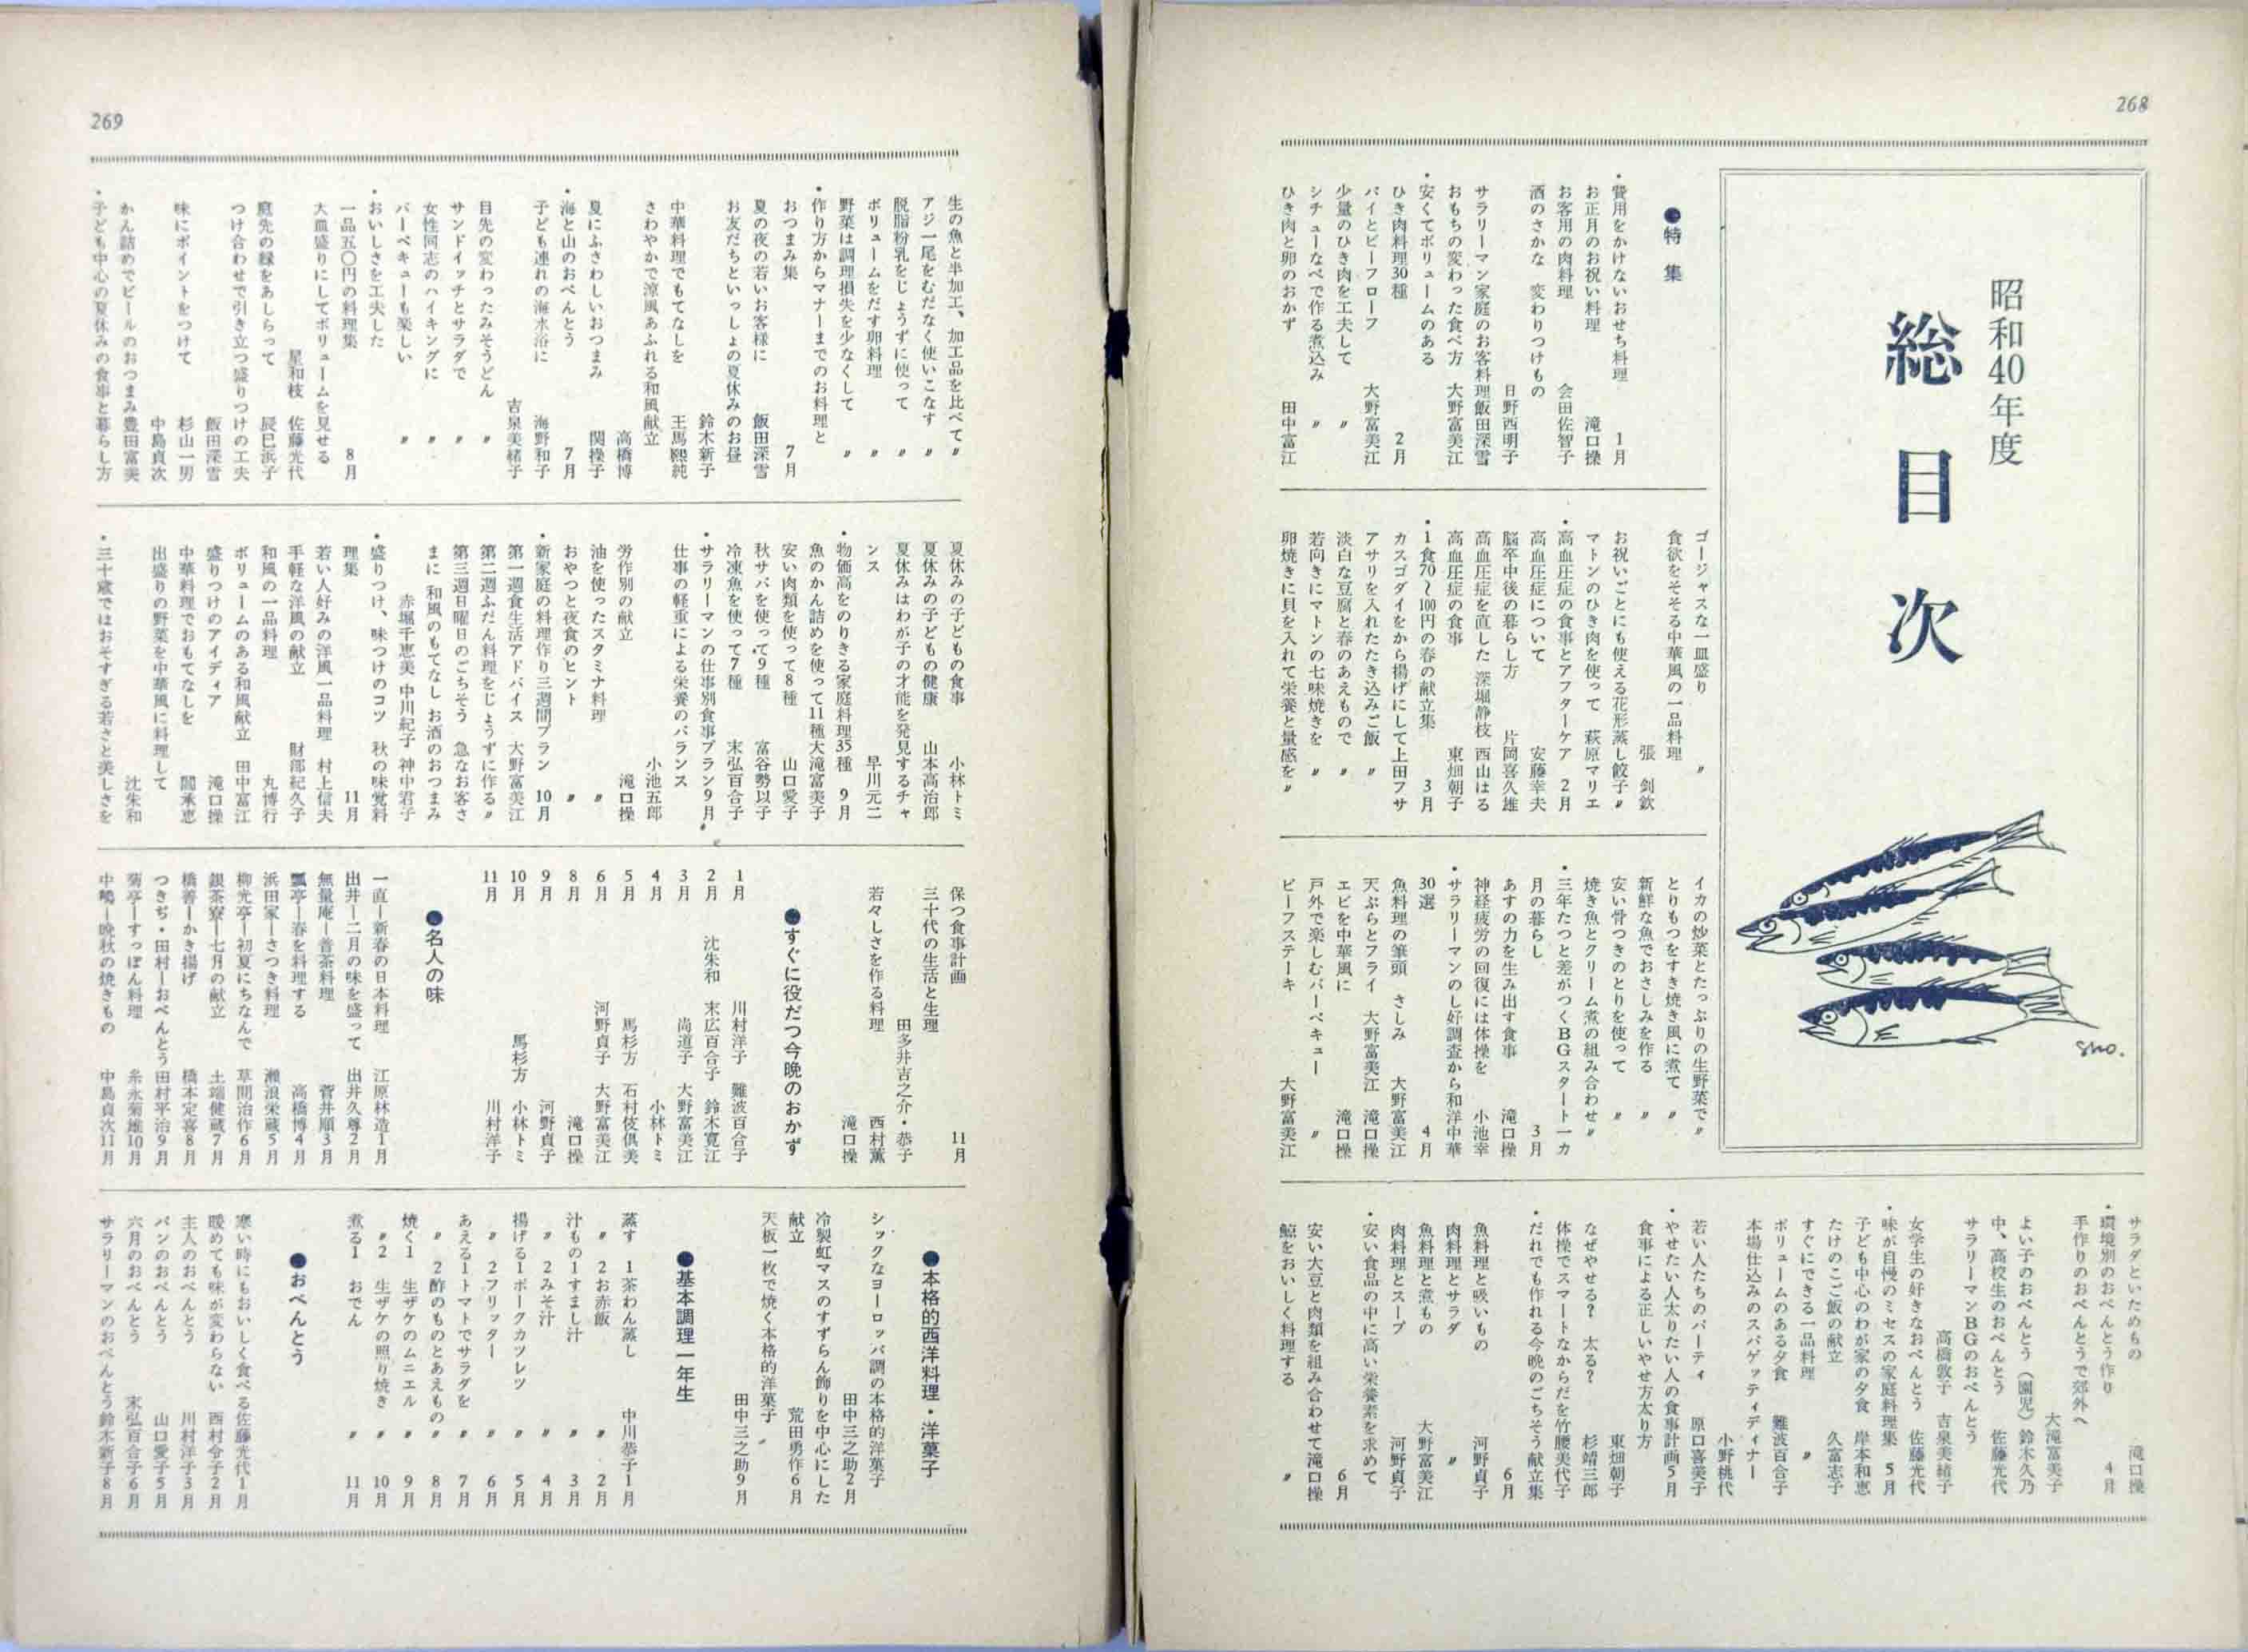 268
昭和40年度
総目次
sho.
●特集
・費用をかけないおせち料理 1月
お正月のお祝い料理 滝口操
お客用の肉料理 会田佐智子
酒のさかな 変わりつけもの
日野西明子
サラリーマン家庭のお客料理 飯田深雪
おもちの変わった食べ方 大野富美江
・安くてボリュームのある
ひき肉料理30種 2月
パイとビーフローフ 大野富美江
少量のひき肉を工夫して 〃
シチューなべで作る煮込み 〃
ひき肉と卵のおかず 田中富江
ゴージャスな一皿盛り 〃
食欲をそそる中華風の一品料理
張 釗欽
お祝いごとにも使える花形蒸し餃子 〃
マトンのひき肉を使って 萩原マリエ
・高血圧症の食事とアフターケア 2月
高血圧症について 安藤幸夫
脳卒中後の暮らし方 片岡喜久雄
高血圧症を直した 深堀静枝 西山はる
高血圧症の食事 東畑朝子
・1食70〜100円の春の献立集 3月
カスゴダイをから揚げにして 上田フサ
アサリを入れたたき込みご飯 〃
淡白な豆腐と春のあえもので 〃
若向きにマトンの七味焼きを 〃
卵焼きに貝を入れて栄養と量感を 〃
イカの炒菜とたっぷりの生野菜で 〃
とりもつをすき焼き風に煮て 〃
新鮮な魚でおさしみを作る 〃
安い骨つきのとりを使って 〃
焼き魚とクリーム煮の組み合わせ 〃
・三年たつと差がつくBGスタート一カ
月の暮らし 3月
あすの力を生み出す食事 滝口操
神経疲労の回復には体操を 小池幸
・サラリーマンのし好調査から和洋中華
30選 4月
魚料理の筆頭 さしみ 大野富美江
天ぷらとフライ 大野富美江 滝口操
エビを中華風に 滝口操
戸外で楽しむバーベキュー 〃
ビーフステーキ 大野富美江
サラダといためもの 滝口操
・環境別のおべんとう作り 4月
手作りのおべんとうで郊外へ
大滝富美子
よい子のおべんとう（園児） 鈴木久乃
中、高校生のおべんとう 佐藤光代
サラリーマンBGのおべんとう
高橋敦子 吉泉美緒子
女学生の好きなおべんとう 佐藤光代
・味が自慢のミセスの家庭料理集 5月
子ども中心のわが家の夕食 岸本和恵
たけのこご飯の献立 久富志子
すぐにできる一品料理 〃
ボリュームのある夕食 難波百合子
本場仕込みのスパゲッティディナー
小野桃代
若い人たちのパーティ 原口喜美子
・やせたい人太りたい人の食事計画 5月
食事による正しいやせ方太り方
東畑朝子
なぜやせる？ 太る？ 杉靖三郎
体操でスマートなからだを 竹腰美代子
・だれでも作れる今晩のごちそう献立集
6月
魚料理と吸いもの 河野貞子
肉料理とサラダ 〃
魚料理と煮もの 大野富美江
肉料理とスープ 河野貞子
・安い食品の中に高い栄養素を求めて
6月
安い大豆と肉類を組み合わせて 滝口操
鯨をおいしく料理する 〃
269
生の魚と半加工、加工品を比べて 〃
アジ一尾をむだなく使いこなす 〃
脱脂粉乳をじょうずに使って 〃
ボリュームをだす卵料理 〃
野菜は調理損失を少なくして 〃
・作り方からマナーまでのお料理と
おつまみ集 7月
夏の夜の若いお客様に 飯田深雪
お友だちといっしょの夏休みのお昼
鈴木新子
中華料理でもてなしを 王馬熙純
さわやかで涼風あふれる和風献立
高橋博
夏にふさわしいおつまみ 関操子
・海と山のおべんとう 7月
子ども連れの海水浴に 海野和子
吉泉美緒子
目先の変わったみそうどん 〃
サンドイッチとサラダで 〃
女性同志のハイキングに 〃
バーベキューも楽しい 〃
・おいしさを工夫した
一品五〇円の料理集 8月
大皿盛りにしてボリュームを見せる
星和枝 佐藤光代
庭先の緑をあしらって 辰巳浜子
つけ合わせで引き立つ盛りつけの工夫
飯田深雪
味にポイントをつけて 杉山一男
中島貞次
かん詰めでビールのおつまみ 豊田富美
・子ども中心の夏休みの食事と暮らし方
夏休みの子どもの食事 小林トミ
夏休みの子どもの健康 山本高治郎
夏休みはわが子の才能を発見するチャ
ンス 早川元二
・物価高をのりきる家庭料理35種 9月
魚のかん詰めを使って11種 大滝富美子
安い肉類を使って8種 山口愛子
秋サバを使って9種 富谷勢以子
冷凍魚を使って7種 末弘百合子
・サラリーマンの仕事別食事プラン 9月
仕事の軽重による栄養のバランス
小池五郎
労作別の献立 滝口操
油を使ったスタミナ料理 〃
おやつと夜食のヒント 〃
・新家庭の料理作り三週間プラン 10月
第一週食生活アドバイス 大野富美江
第二週ふだん料理をじょうずに作る 〃
第三週日曜日のごちそう 急なお客さ
まに 和風のもてなし お酒のおつまみ
赤堀千恵美 中川紀子 神中君子
・盛りつけ、味つけのコツ 秋の味覚料
理集 11月
若い人好みの洋風一品料理 村上信夫
手軽な洋風の献立 財部紀久子
和風の一品料理 丸博行
ボリュームのある和風献立 田中富江
盛りつけのアイディア 滝口操
中華料理でおもてなしを 閻承恵
出盛りの野菜を中華風に料理して
沈朱和
・三十歳ではおそすぎる若さと美しさを
保つ食事計画 11月
三十代の生活と生理
田多井吉之介・恭子
若々しさを作る料理 西村薫
滝口操
●すぐに役だつ今晩のおかず
1月 川村洋子 難波百合子
2月 沈朱和 末広百合子 鈴木寛江
3月 尚道子 大野富美江
4月 小林トミ
5月 馬杉方 石村伎倶美
6月 河野貞子 大野富美江
8月 滝口操
9月 河野貞子
10月 馬杉方 小林トミ
11月 川村洋子
●名人の味
一直―新春の日本料理 江原林造 1月
出井―二月の味を盛って 出井久尊 2月
無量庵―普茶料理 菅井順 3月
瓢亭―春を料理する 高橋博 4月
浜田家―さつき料理 瀬浪栄蔵 5月
柳光亭―初夏にちなんで 草間治作 6月
銀茶寮―七月の献立 土端健蔵 7月
橋善―かき揚げ 橋本定喜 8月
つきぢ・田村―おべんとう 田村平治 9月
菊亭―すっぽん料理 糸永菊雄 10月
中嶋―晩秋の焼きもの 中島貞次 11月
●本格的西洋料理・洋菓子
シックなヨーロッパ調の本格的洋菓子
田中三之助 2月
冷製虹マスのすずらん飾りを中心にした
献立 荒田勇作 6月
天板一枚で焼く本格的洋菓子
田中三之助 9月
●基本調理一年生
蒸す 1茶わん蒸し 中川恭子 1月
〃 2お赤飯 〃 2月
汁もの1すまし汁 〃 3月
〃 2みそ汁 〃 4月
揚げる1ポークカツレツ 〃 5月
〃 2フリッター 〃 6月
あえる1トマトでサラダを 〃 7月
〃 2酢のものとあえもの 〃 8月
焼く1 生ザケのムニエル 〃 9月
〃 2 生ザケの照り焼き 〃 10月
煮る1 おでん 〃 11月
●おべんとう
寒い時にもおいしく食べる 佐藤光代 1月
暖めても味が変わらない 西村令子 2月
主人のおべんとう 川村洋子 3月
パンのおべんとう 山口愛子 5月
六月のおべんとう 末弘百合子 6月
サラリーマンのおべんとう 鈴木新子 8月